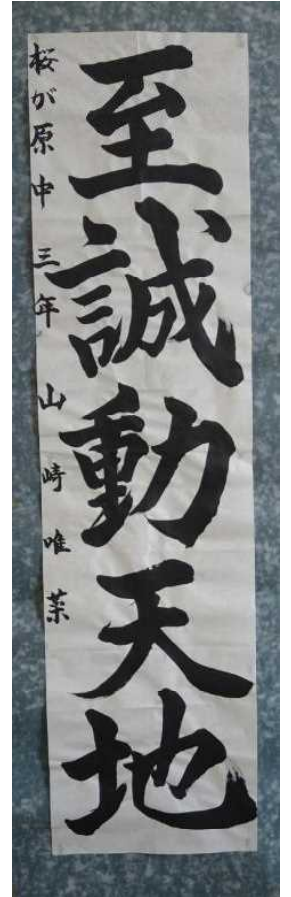 至誠動天地
桜が原中 三年 山崎唯菜